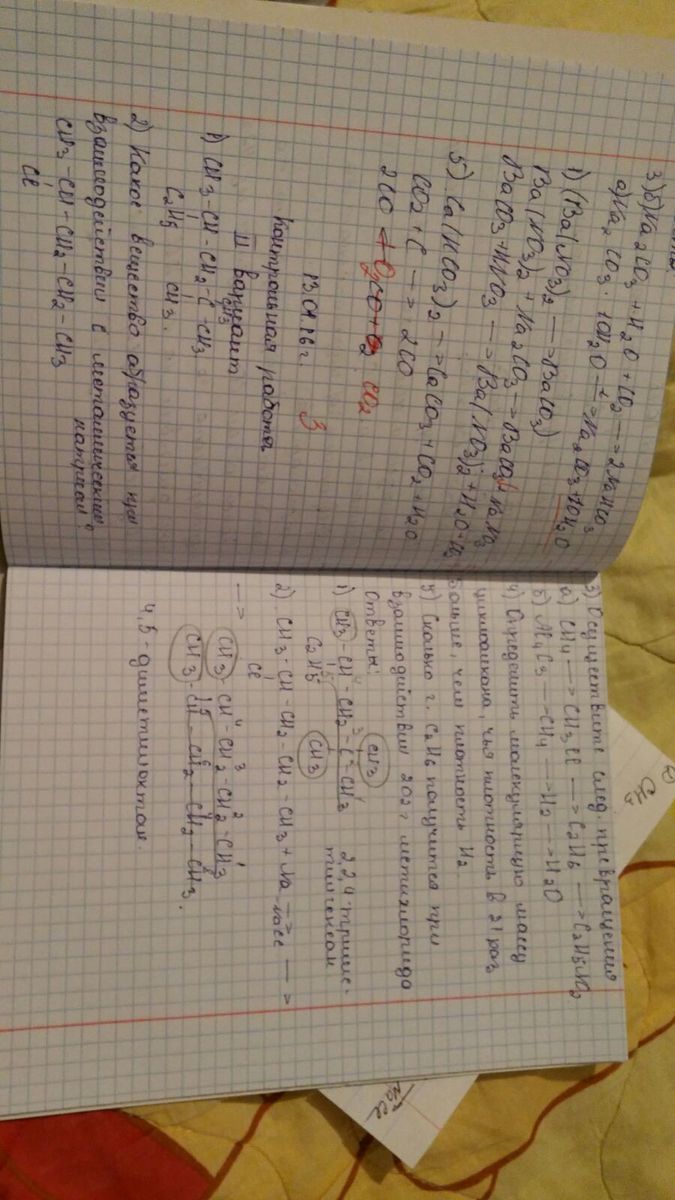 3) б) Na2CO3 + H2O + CO2 —> 2NaHCO3
а) Na2CO3 · 10H2O —t> Na2CO3 + 10H2O
1) (Ba(NO3)2 —> BaCO3)
Ba(NO3)2 + Na2CO3 —> BaCO3↓ + NaNO3
BaCO3 + HNO3 —> Ba(NO3)2 + H2O +
5) Ca(HCO3)2 —> CaCO3 + CO2 + H2O
CO2 + C —> 2CO
2CO + O2 CO2
13.04.16 г. 3
Контрольная работа
II вариант
CH3
1) CH3 - CH - CH2 - C - CH3
C2H5 CH3.
2) Какое вещество образуется при
взаимодействии с металлическим
натрием
CH3 - CH - CH2 - CH2 - CH3
Cl
3) Осуществите след. превращения
а) CH4 —> CH3Cl —> C2H6 —> C2H5NO2
б) Al4C3 —> CH4 —> H2 —> H2O
4) Определить молекулярную массу
циклоалкана, чья плотность в 21 раз
больше, чем плотность H2
5) Сколько г. C2H6 получится при
взаимодействии 202 г метилхлорида
Ответы:
CH3
1) CH3 - CH - CH2 - C - CH3 2,2,4-триме-
C2H5 CH3 тилгексан
2) CH3 - CH - CH2 - CH2 - CH3 + Na —> —>
Cl -NaCl
—> CH3 - CH - CH2 - CH2 - CH3
CH3 - CH - CH2 - CH2 - CH3.
4,5-диметилоктан.
CH3
NaCl